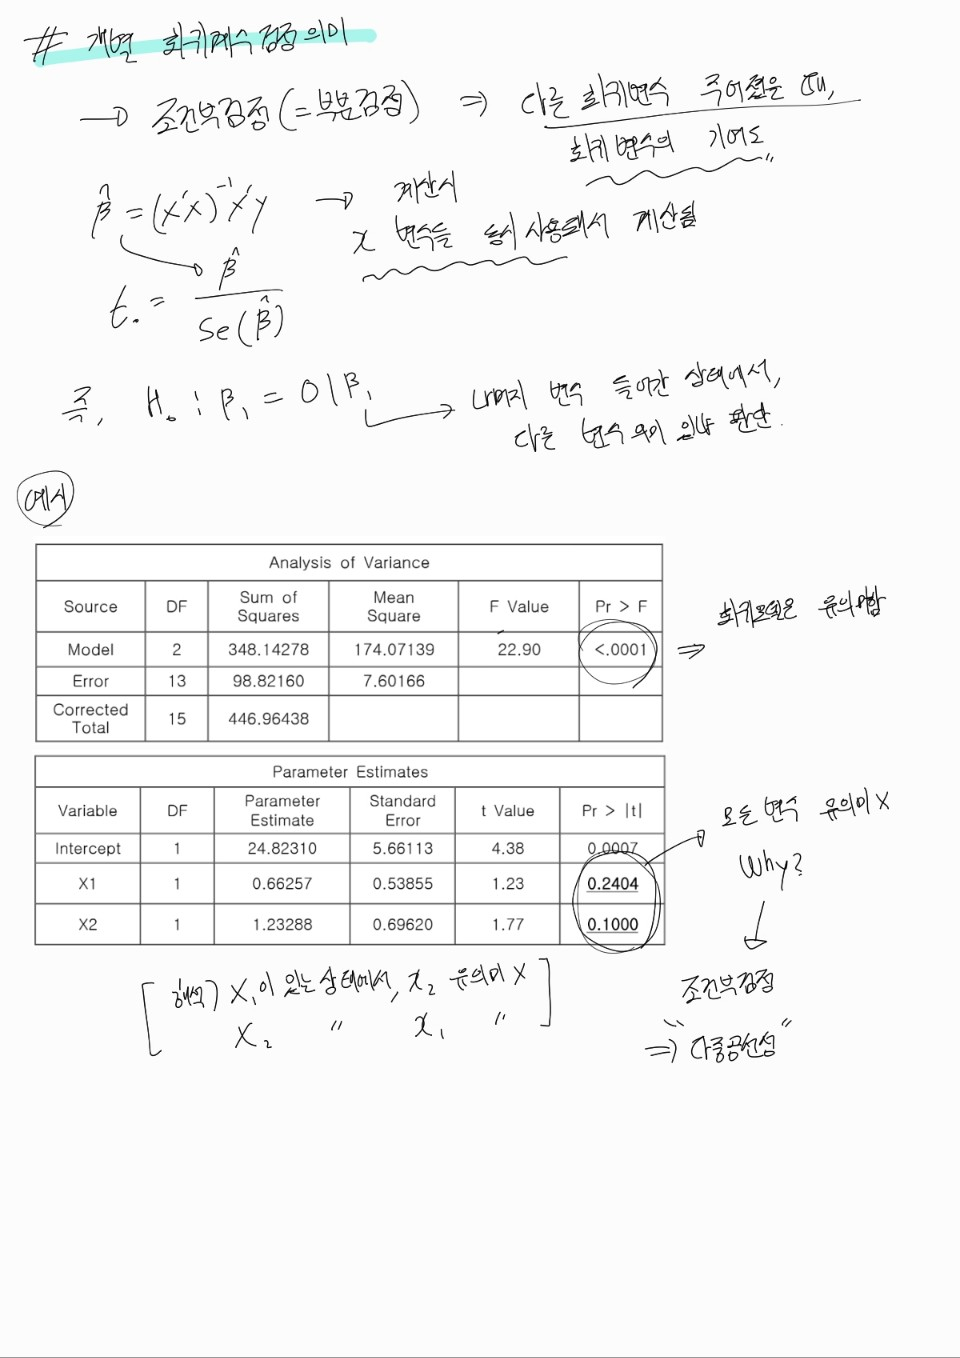 # 개별 회귀계수 검정 의미
→ 조건부검정 (=부분검정) ⇒ 다른 회귀변수 주어졌은 때,
회귀 변수의 기여도
β̂ = (X'X)⁻¹X'y → 계산시
x 변수들 동시 사용돼서 계산됨
t₀ = β̂ / Se(β̂)
즉, H₀ : β₁ = 0 | β₁ → 나머지 변수 들어간 상태에서,
다른 변수 유의 있나 판단.
예시
Analysis of Variance
Source DF Sum of Squares Mean Square F Value Pr > F
Model 2 348.14278 174.07139 22.90 <.0001 ⇒ 회귀모델은 유의함
Error 13 98.82160 7.60166
Corrected Total 15 446.96438
Parameter Estimates
Variable DF Parameter Estimate Standard Error t Value Pr > |t|
Intercept 1 24.82310 5.66113 4.38 0.0007
X1 1 0.66257 0.53855 1.23 0.2404
X2 1 1.23288 0.69620 1.77 0.1000
→ 모든 변수 유의미 X
Why?
↓
조건부검정
⇒ "다중공선성"
[ 해석) X₁이 있는 상태에서, x₂ 유의미 X ]
X₂ " x₁ "